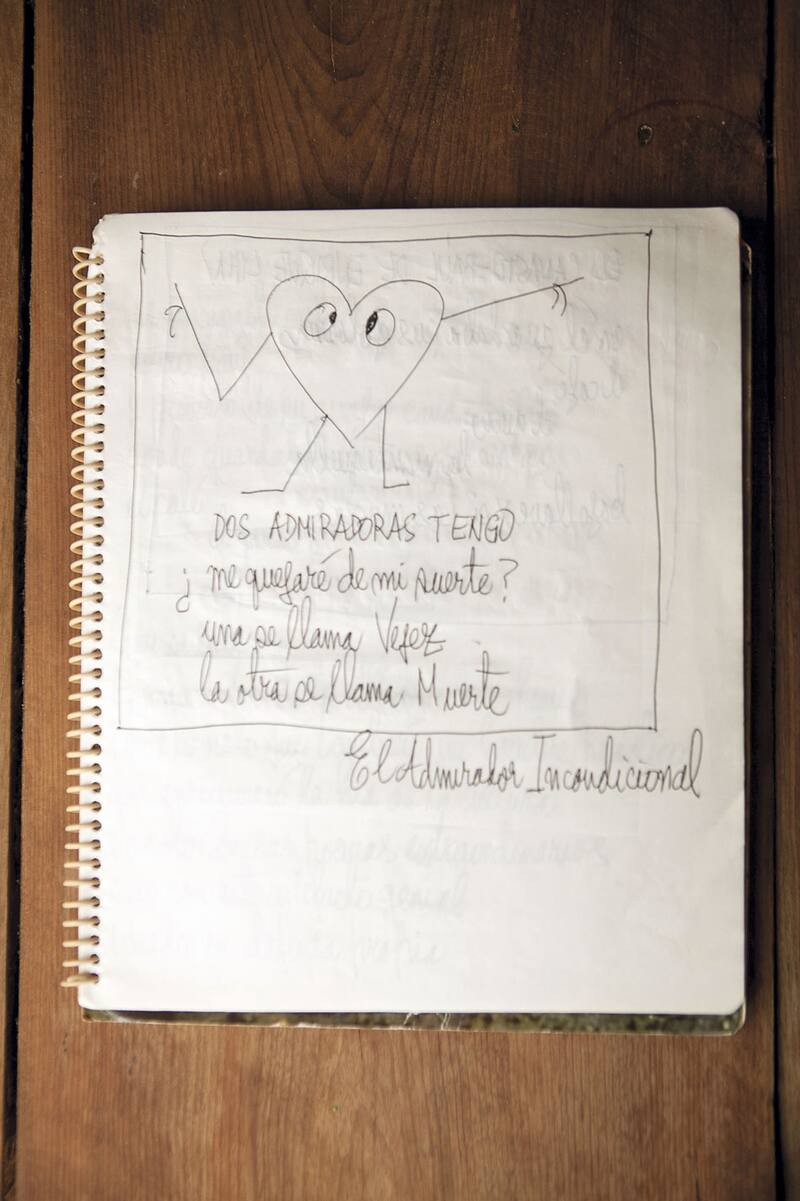 DOS ADMIRADORAS TENGO
¿ me quejaré de mi suerte?
una se llama Vejez
la otra se llama Muerte
El Admirador Incondicional